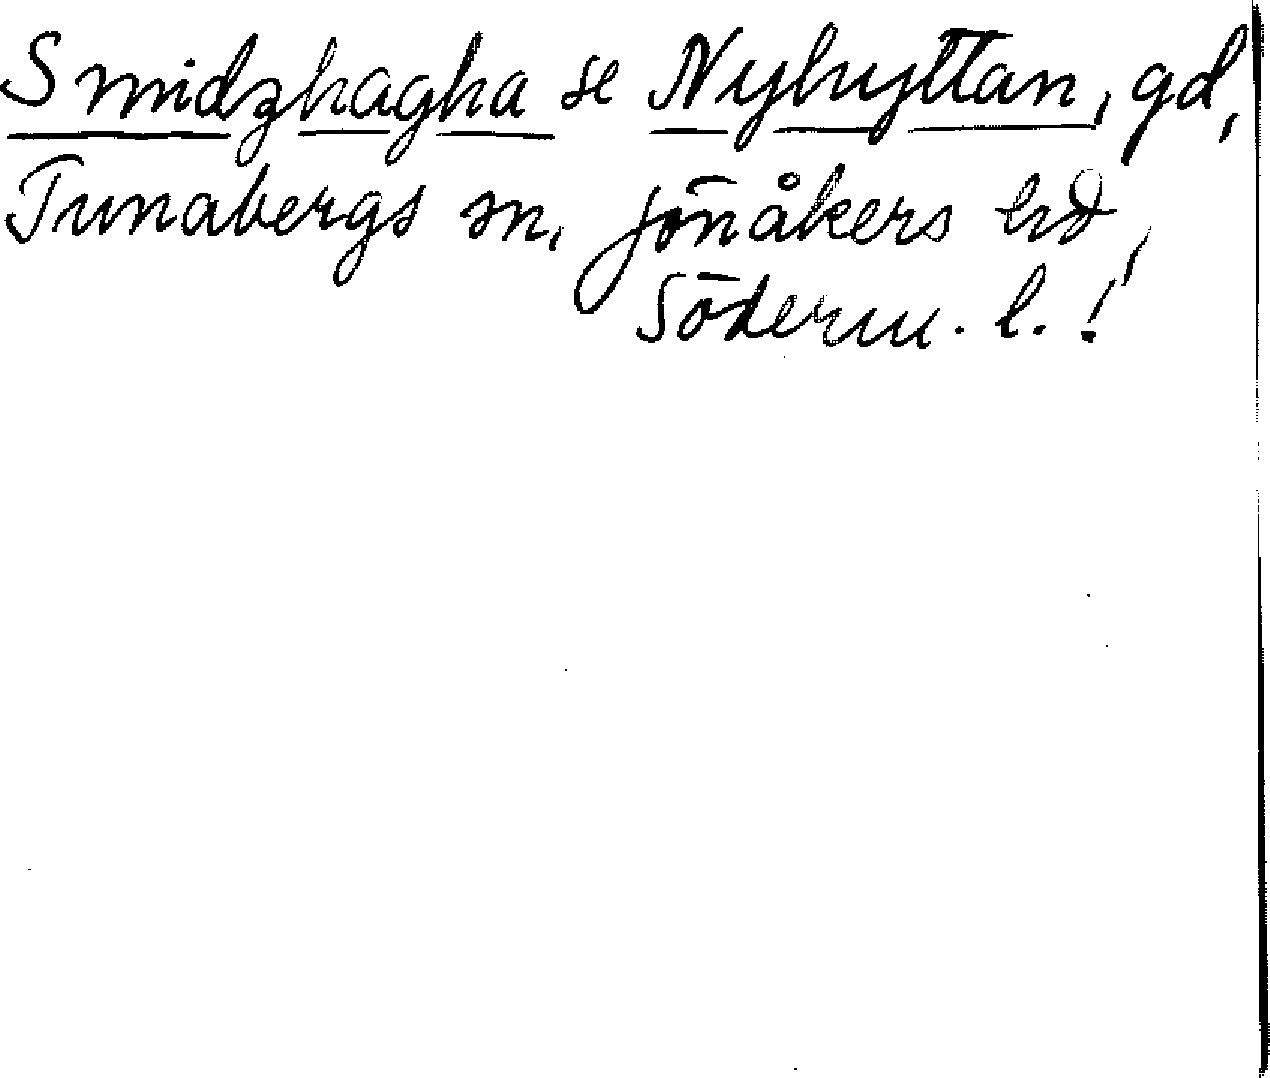 Smidzhagha se Nyhyttan, gd,
Tunabergs sn, Jönåkers hd,
Söderm. l.!